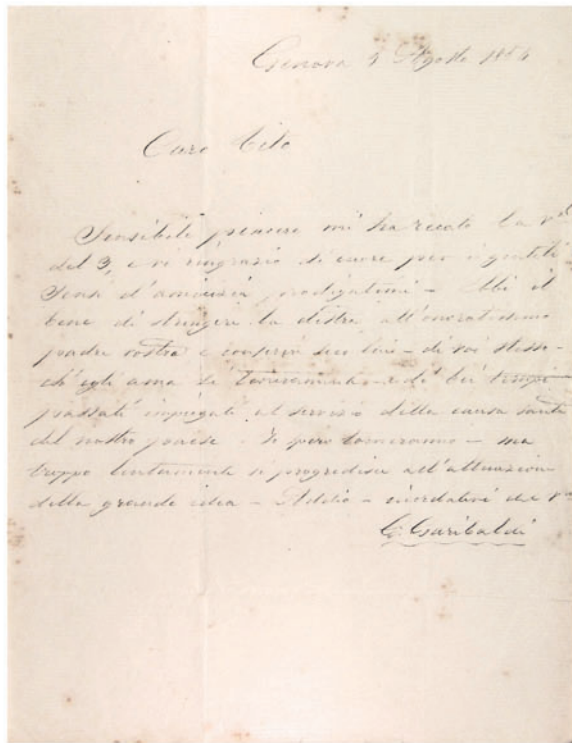 Genova 4 Agosto 1854
Caro Tito
Sensibile piacere mi ha recato la vª
del 3, e vi ringrazio di cuore per i gentili
sensi d'amicizia prodigatimi – Ebbi il
bene di stringere la destra all'onoratissimo
padre vostro e conferir seco lui – di voi stesso
ch'egli ama sì – e di bei tempi
passati impiegati al servizio della causa santa
del nostro paese. Io spero torneranno – ma
troppo lentamente si progredisce all'attuazione
della grande idea – Addio – ricordatevi del vº
G. Garibaldi